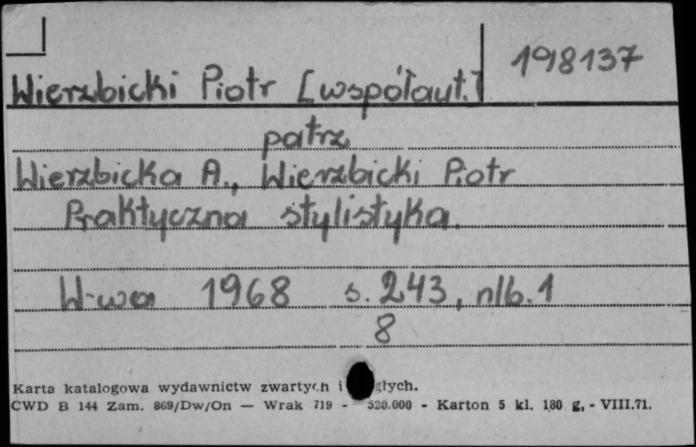 198137
Wierzbicki Piotr [współaut.]
patrz
Wierzbicka A., Wierzbicki Piotr
Praktyczna stylistyka.
W-wa 1968 s. 243, nlb. 1
8
Karta katalogowa wydawnictw zwartych i głych.
CWD B 144 Zam. 869/Dw/On — Wrak 719 - 520.000 - Karton 5 kl. 180 g, - VIII.71.